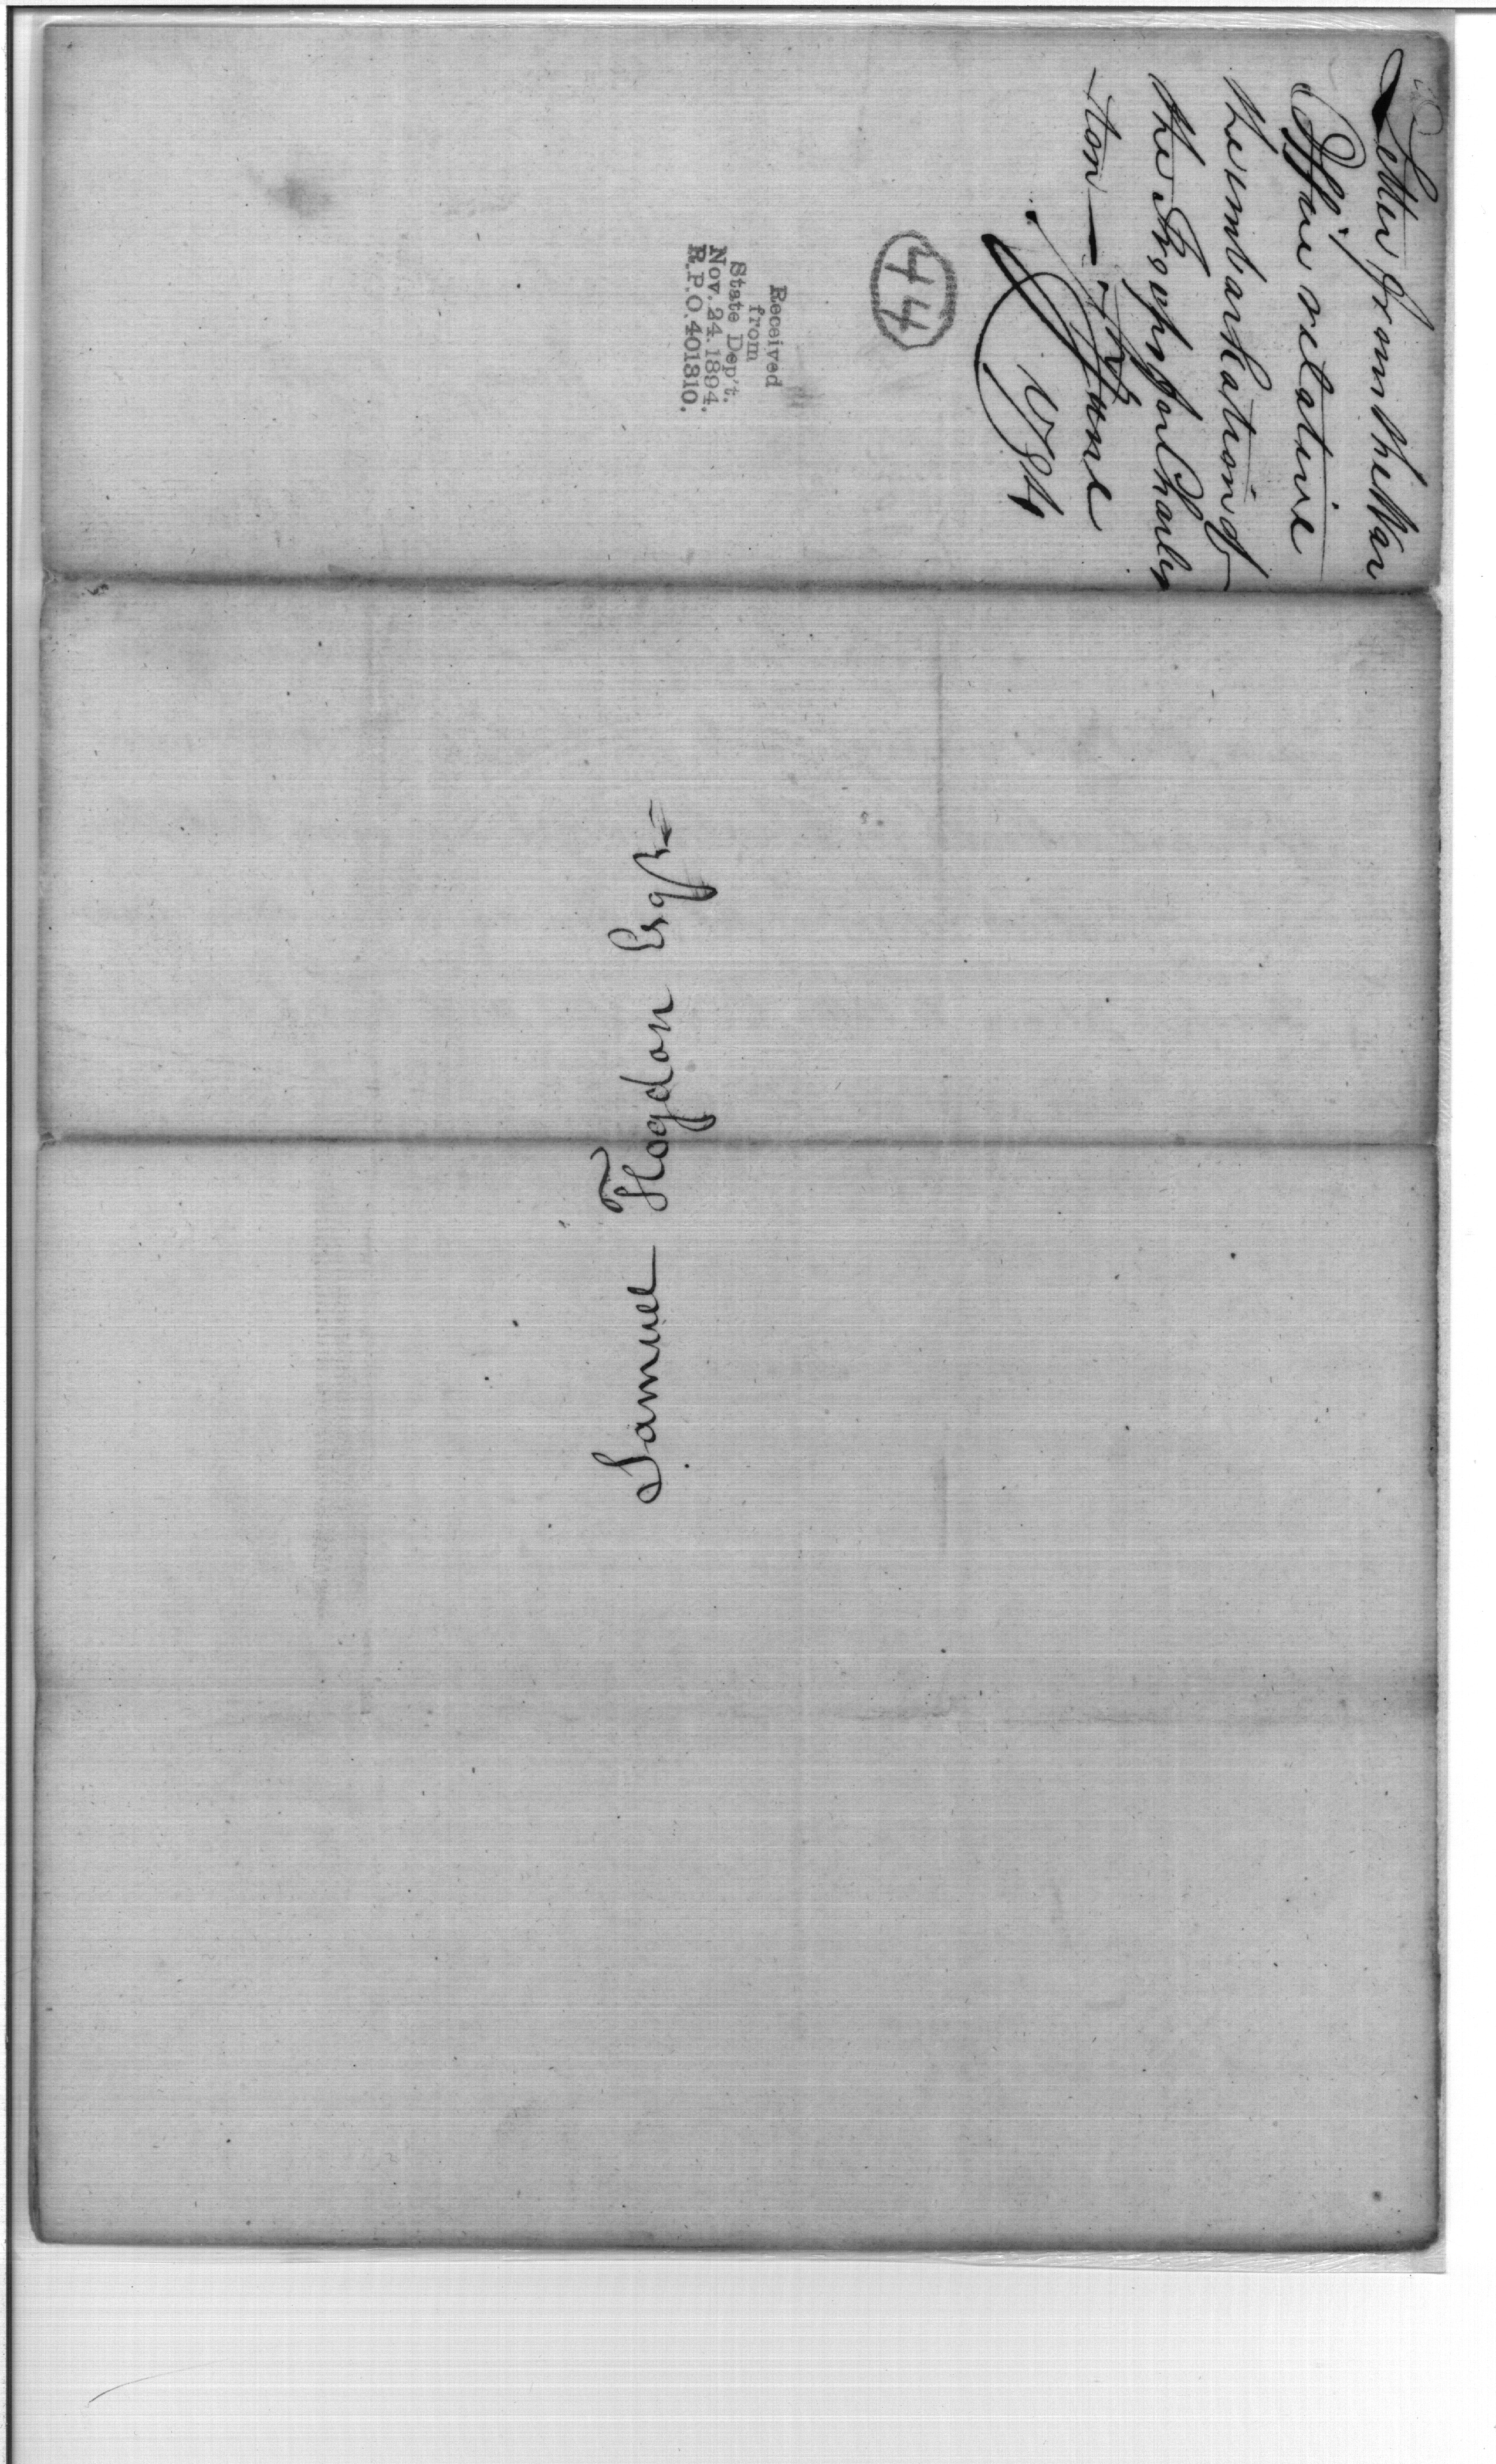 Letter from the War
Office relative
the imbarkation of
the Troops for Charles
-ton — June
1784
44
Received
from
State Dep't.
Nov. 24. 1894.
R.P.O. 401310.
Samuel Hogdon Esqr